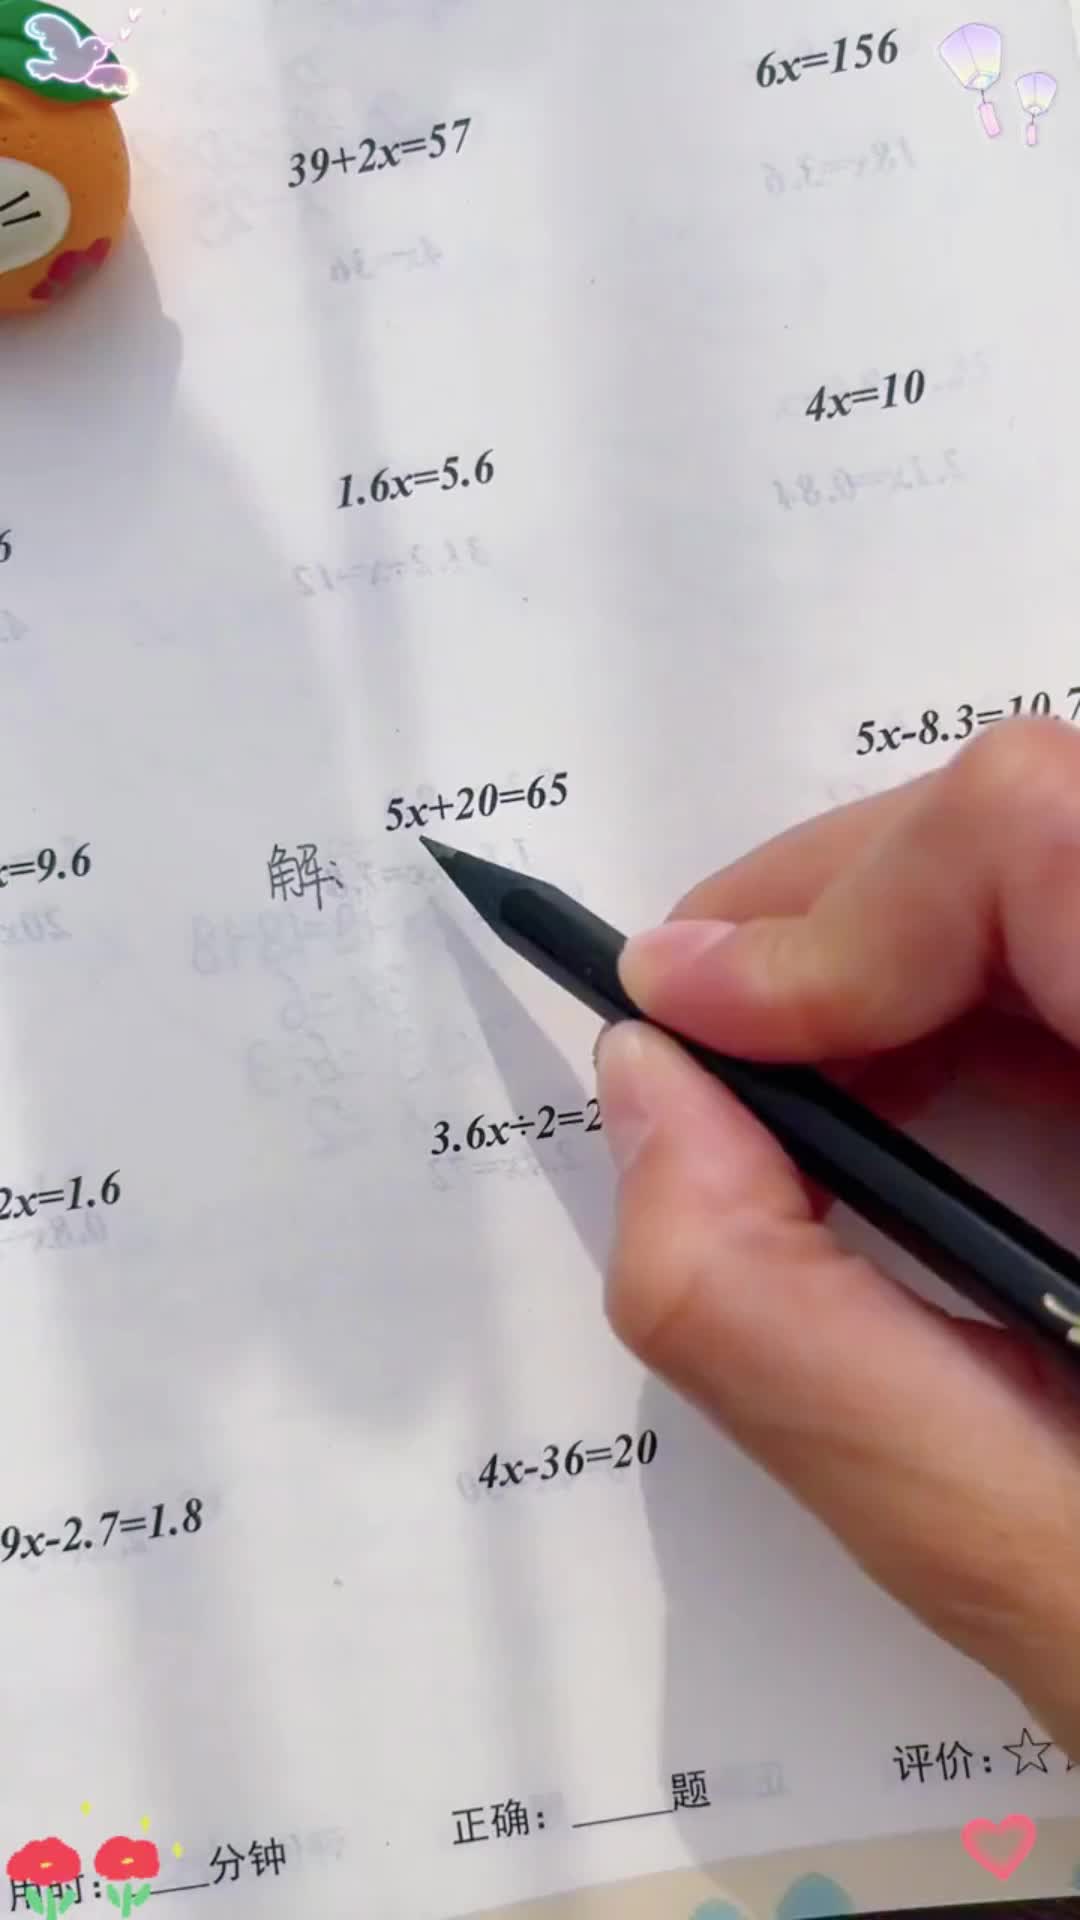 6x=156
39+2x=57
4x=10
1.6x=5.6
6
5x-8.3=10.7
5x+20=65
解:
x=9.6
3.6x÷2=2
2x=1.6
4x-36=20
9x-2.7=1.8
评价:☆
正确:____题
用时:____分钟